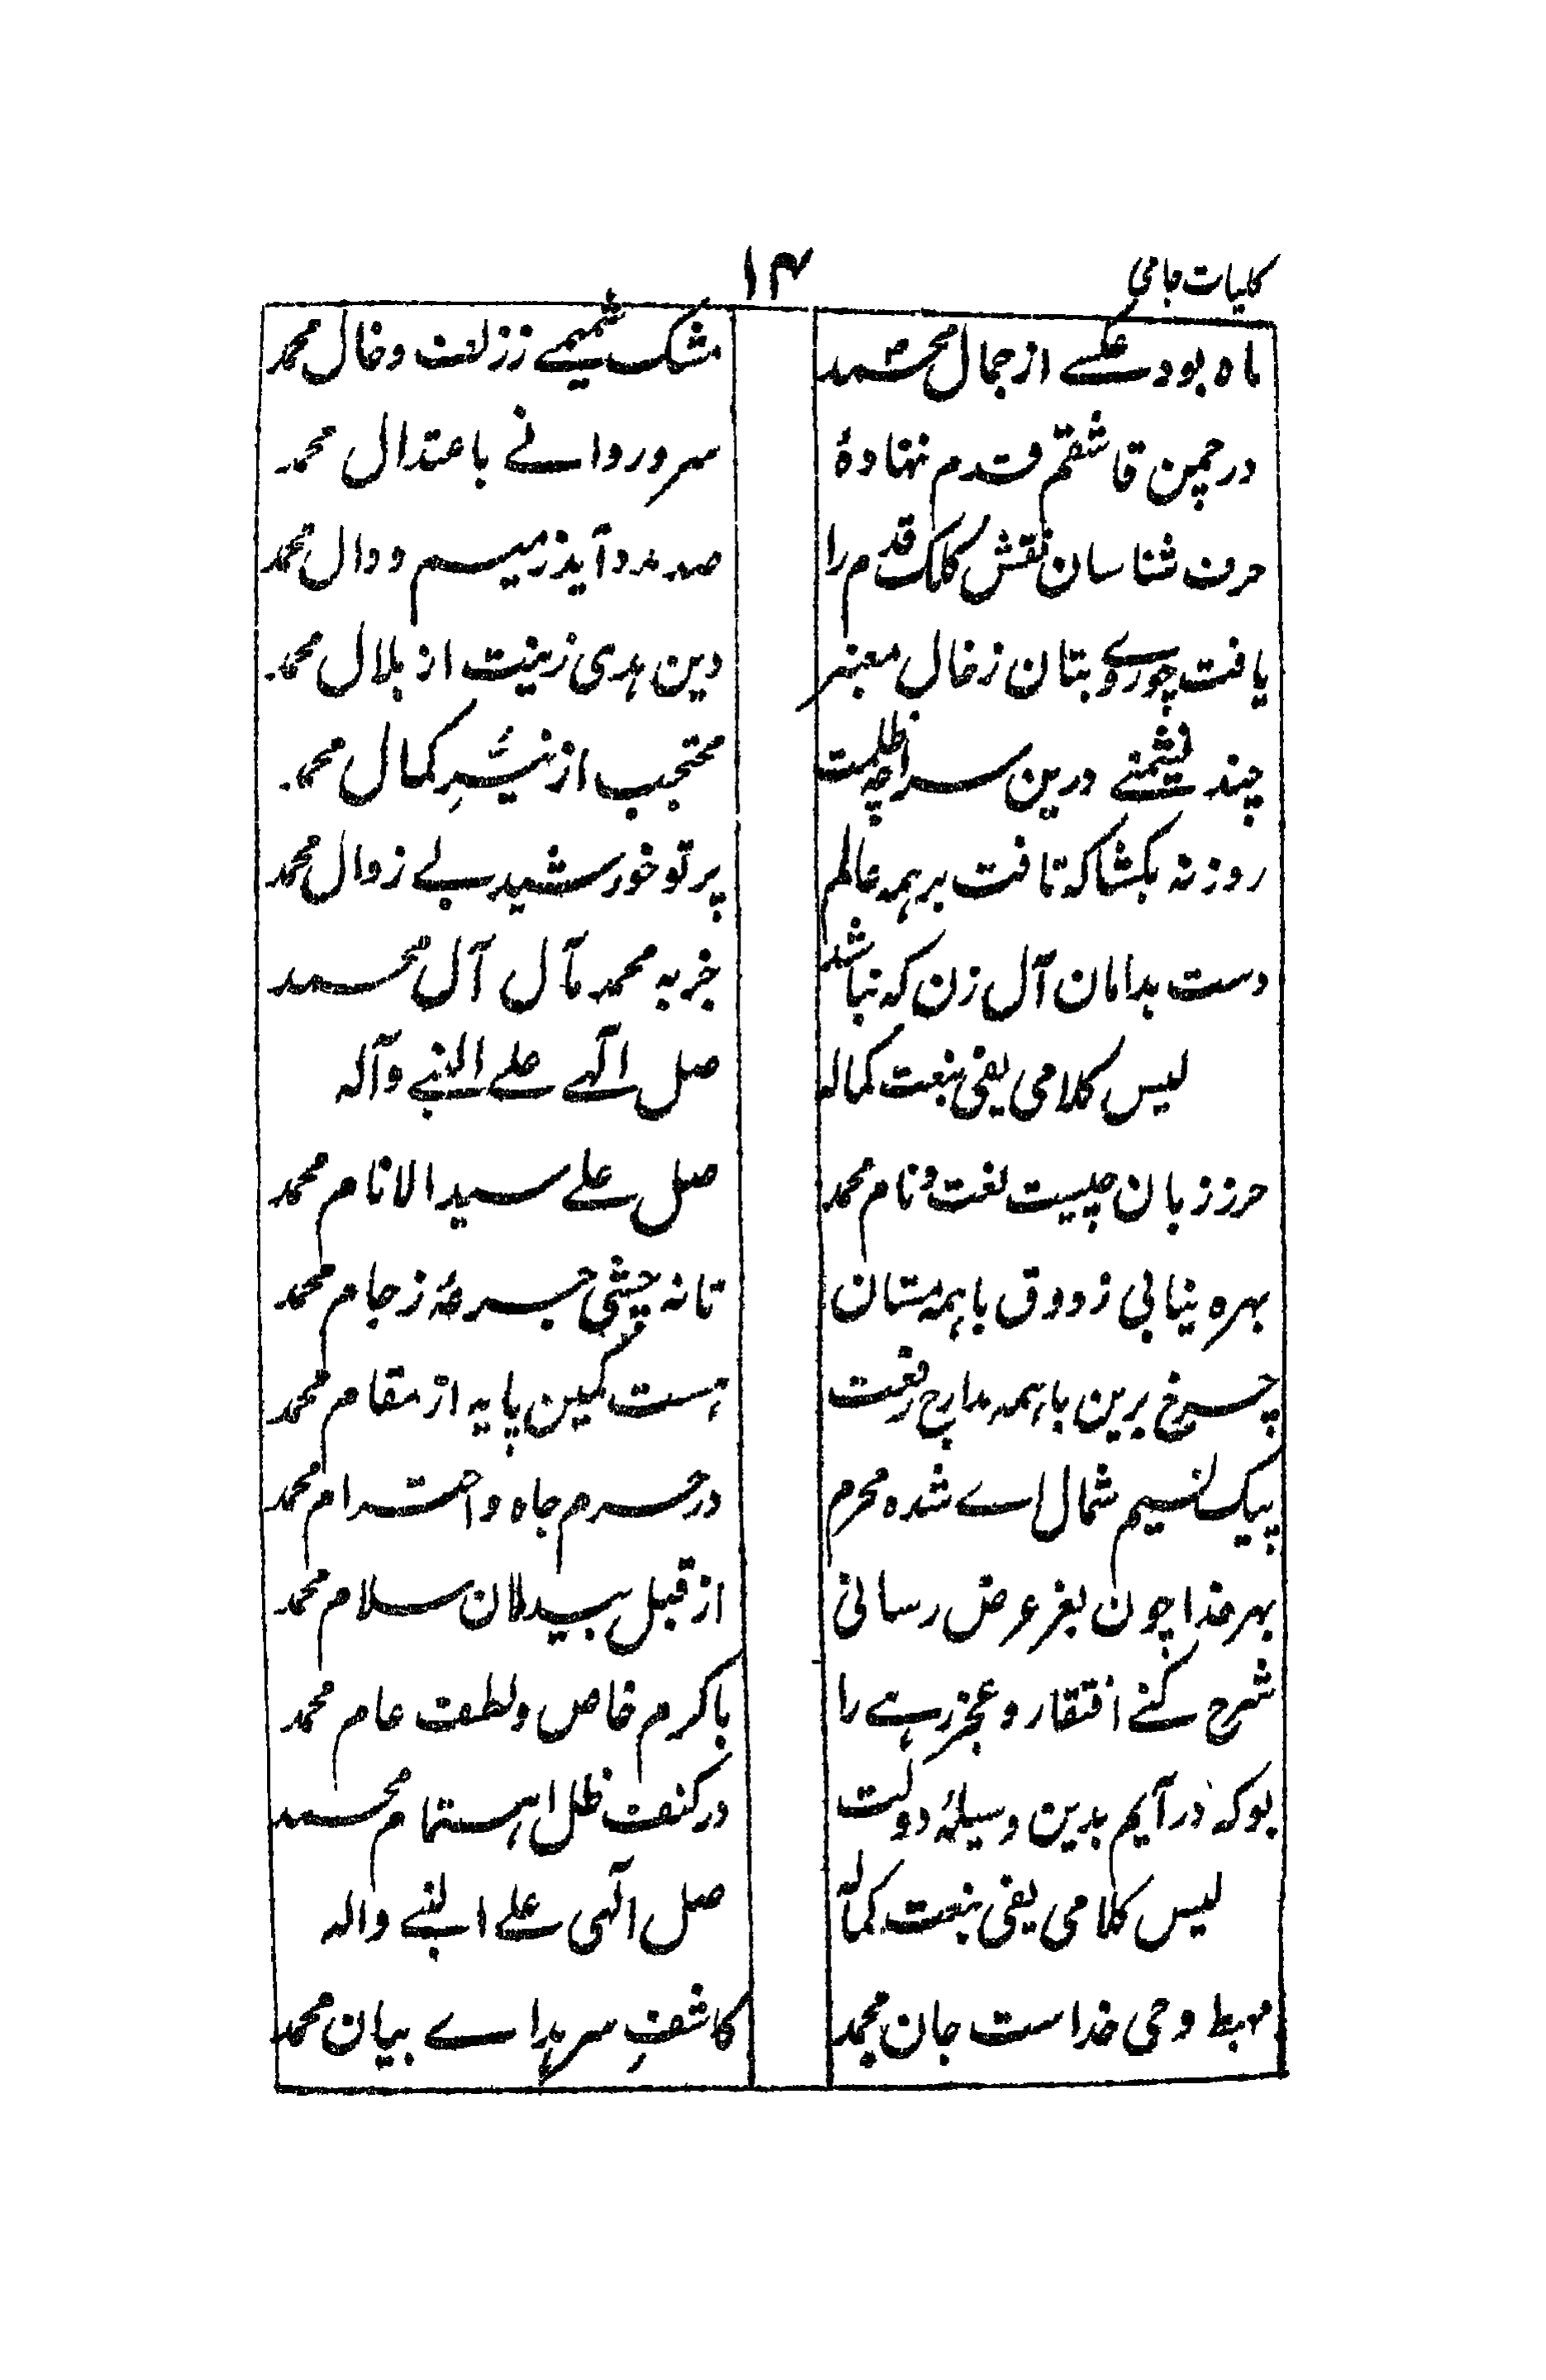 کلیات جامی
۱۴
ماہ بود عکسے از جمال محمد
مشک شمیمے ز زلف وخال محمد
در چمن فاستقم قدم ننهادہ
سرو روانے باعتدال محمد
حرف شناسان نقش کلک قدم را
صد مدد آید ز میم ودال محمد
یافت چو روے بتان ز خال معنبر
دین ہدی زینت از بلال محمد
چند نشینے درین سراچہ ظلمت
محتجب از نیّرِ کمال محمد
روزنہ بکشا کہ تافت بر ہمہ عالم
پرتو خورشید بے زوال محمد
دست بدامان آل زن کہ نباشد
جز بہ محمد مآل آل محمد
لیس کلامی یفی بنعت کمالہ
صل الٰہے علے النبے وآلہ
حرز زبان چیست نعت ونام محمد
صل علے سید الانام محمد
بہرہ نیابی ز ذوق باہمہ مستان
تا نہ چشی جرعۂ ز جام محمد
چرخ برین باہمہ مدارج رفعت
ہست کمین پایہ از مقام محمد
پیک نسیم شمال اے شدہ محرم
در حرم جاہ واحترام محمد
بہر خدا چون بغر عرض رسانی
از قبل بیدلان سلام محمد
شرح کنے افتقار وعجز رہے را
باکرم خاص ولطف عام محمد
بو کہ در آیم بدین وسیلۂ دولت
در کنف ظل اہتمام محمد
لیس کلامی یفی بنعت کمالہ
صل الٰہی علے النبے والہ
مہبط وحی خداست جان محمد
کاشفِ سر ہدا ے بیان محمد